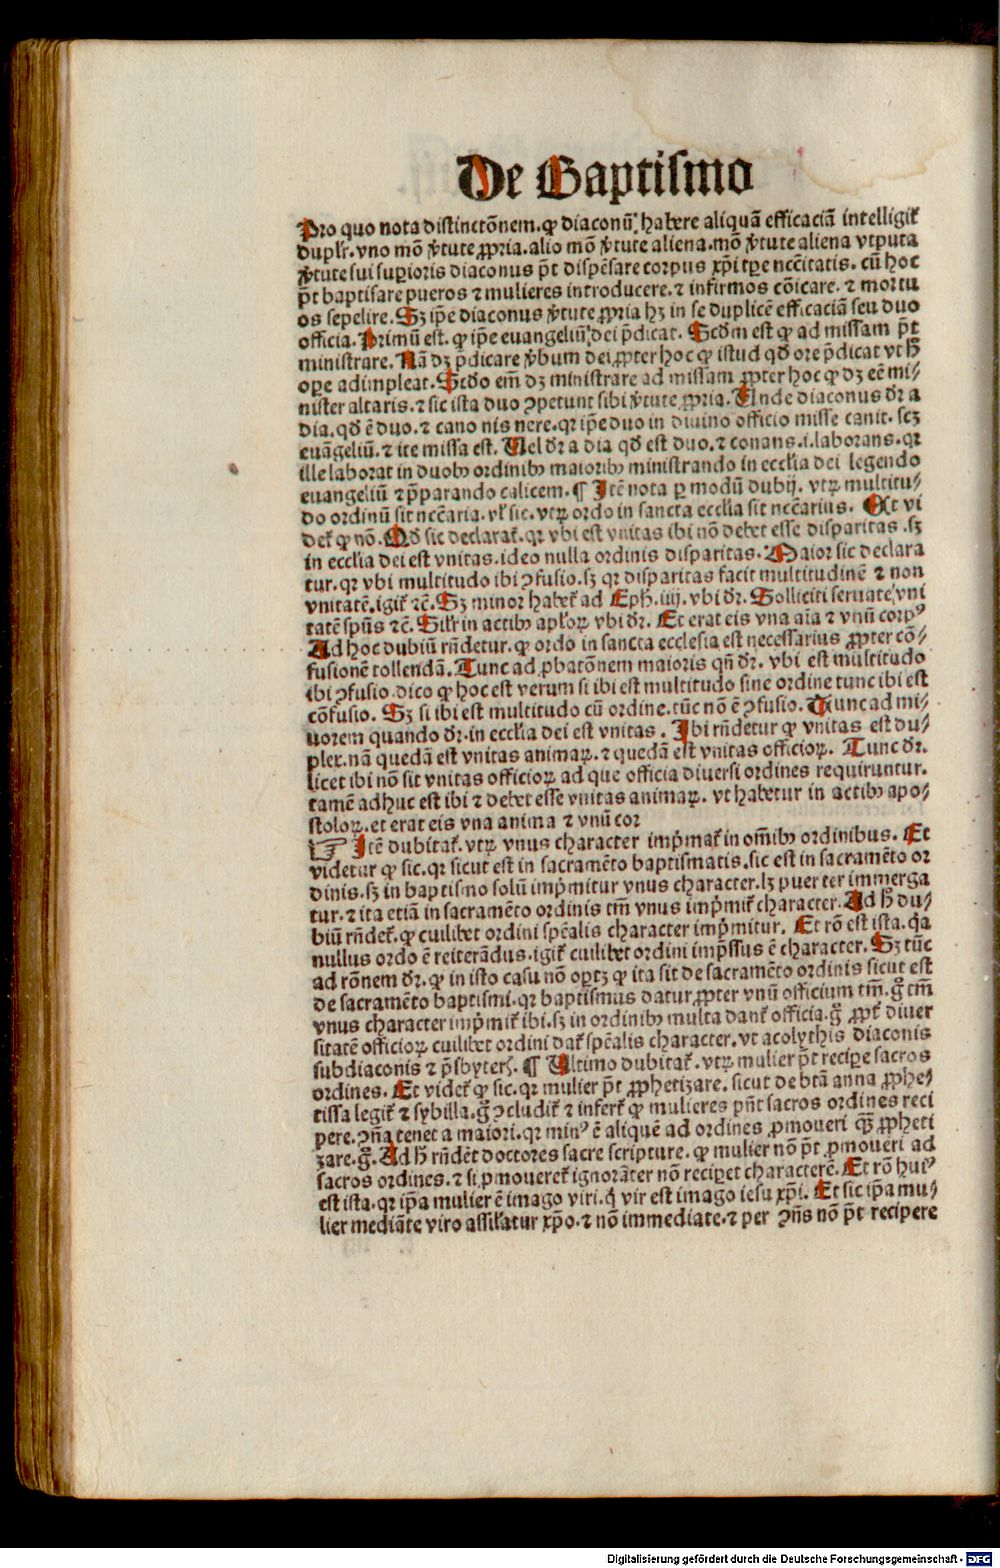 De Baptismo
Pro quo nota distinctōnem. ꝙ diaconū habere aliquā efficaciā intelligit᷑
duplr̄. vno mō v̄tute ꝓpria. alio mō v̄tute aliena. mō v̄tute aliena vtputa
v̄tute sui superioris diaconus pōt dispēsare corpus xp̄i tp̄e nec̄citatis. cū hoc
pōt baptisare pueros ⁊ mulieres introducere. ⁊ infirmos cōicare. ⁊ mortu
os sepelire. Sꝫ ip̄e diaconus v̄tute ꝓpria hꝫ in se duplicē efficaciā seu duo
officia. Primū est. ꝙ ip̄e euangeliū dei p̄dicat. Scd̄m est ꝙ ad missam pōt
ministrare. Nā dꝫ p̄dicare v̄bum dei ꝓpter hoc ꝙ istud qd̄ ore p̄dicat vt h̄
ope adimpleat. Scd̄o em̄ dꝫ ministrare ad missam ꝓpter hoc ꝙ dꝫ eē mi⸗
nister altaris. ⁊ sic ista duo ꝯpetunt sibi v̄tute ꝓpria. Unde diaconus dr̄ a
dia. qd̄ ē duo. ⁊ cano nis nere. qr ip̄e duo in diuino officio misse canit. scꝫ
euāgeliū. ⁊ ite missa est. Uel dr̄ a dia qd̄ est duo. ⁊ conans. i. laborans. qr
ille laborat in duobꝰ ordinibꝰ maioribꝰ ministrando in ecclia dei legendo
euangeliū ⁊ p̄parando calicem. ¶ Itē nota ꝑ modū dubij. vtꝝ multitu⸗
do ordinū sit nec̄caria. vl̓ sic. vtꝝ ordo in sancta ecclia sit nec̄carius. Et vi
det᷑ ꝙ nō. Qd̄ sic declarat᷑. qr vbi est vnitas ibi nō debet esse disparitas. sꝫ
in ecclia dei est vnitas. ideo nulla ordinis disparitas. Maior sic declara
tur. qr vbi multitudo ibi ꝯfusio. sꝫ qr disparitas facit multitudinē ⁊ non
vnitatē. igit᷑ ⁊c̄. Sꝫ minor habet᷑ ad Eph̄. iiij. vbi dr̄. Solliciti seruate vni
tatē spūs ⁊c̄. Silr̄ in actibꝰ apl̓oꝝ vbi dr̄. Et erat eis vna aīa ⁊ vnū corpꝰ
Ad hoc dubiū rn̄detur. ꝙ ordo in sancta ecclesia est necessarius ꝓpter cō⸗
fusionē tollendā. Tunc ad ꝓbatōnem maioris qn̄ dr̄. vbi est multitudo
ibi ꝯfusio. dico ꝙ hoc est verum si ibi est multitudo sine ordine tunc ibi est
cōfusio. Sꝫ si ibi est multitudo cū ordine. tūc nō ē ꝯfusio. Tunc ad mi⸗
norem quando dr̄. in ecclia dei est vnitas. Ibi rn̄detur ꝙ vnitas est du⸗
plex. nā quedā est vnitas animaꝝ. ⁊ quedā est vnitas officioꝝ. Tunc dr̄.
licet ibi nō sit vnitas officioꝝ ad que officia diuersi ordines requiruntur.
tamē adhuc est ibi ⁊ debet esse vnitas animaꝝ. vt habetur in actibꝰ apo⸗
stoloꝝ. et erat eis vna anima ⁊ vnū cor
☞ Itē dubitat᷑. vtꝝ vnus character imp̄mat᷑ in om̄ibꝰ ordinibus. Et
videtur ꝙ sic. qr sicut est in sacramēto baptismatis. sic est in sacramēto or
dinis. sꝫ in baptismo solū imp̄mitur vnus character. lꝫ puer ter immerga
tur. ⁊ ita etiā in sacramēto ordinis tm̄ vnus imp̄mit᷑ character. Ad h̄ du⸗
biū rn̄det᷑. ꝙ cuilibet ordini spēalis character imp̄mitur. Et rō est ista. qꝛ
nullus ordo ē reiterādus. igit᷑ cuilibet ordini imp̄ssus ē character. Sꝫ tūc
ad rōnem dr̄. ꝙ in isto casu nō optꝫ ꝙ ita sit de sacramēto ordinis sicut est
de sacramēto baptismi. qr baptismus datur ꝓpter vnū officium tm̄. g̊ tm̄
vnus character imp̄mit᷑ ibi. sꝫ in ordinibꝰ multa dant᷑ officia. g̊ ꝓpt᷑ diuer
sitatē officioꝝ cuilibet ordini dat᷑ spēalis character. vt acolythis diaconis
subdiaconis ⁊ p̄sbyter̄. ¶ Ultimo dubitat᷑. vtꝝ mulier pōt recipe sacros
ordines. Et videt᷑ ꝙ sic. qr mulier pōt ꝓphetizare. sicut de btā anna ꝓphe⸗
tissa legit᷑ ⁊ sybilla. g̊ ꝯcludit᷑ ⁊ infert᷑ ꝙ mulieres pn̄t sacros ordines reci
pere. ꝯn̄a tenet a maiori. qr minꝰ ē aliquē ad ordines ꝓmoueri ꝙ̄ ꝓpheti
zare. g̊. Ad h̄ rn̄dēt doctores sacre scripture. ꝙ mulier nō pōt ꝓmoueri ad
sacros ordines. ⁊ si ꝓmoueret᷑ ignorāter nō reciperet characterē. Et rō huiꝰ
est ista. qr ip̄a mulier ē imago viri. qꝛ vir est imago iesu xp̄i. Et sic ip̄a mu⸗
lier mediāte viro assil̓atur xp̄o. ⁊ nō immediate. ⁊ per ꝯn̄s nō pōt recipere
Digitalisierung gefördert durch die Deutsche Forschungsgemeinschaft - DFG